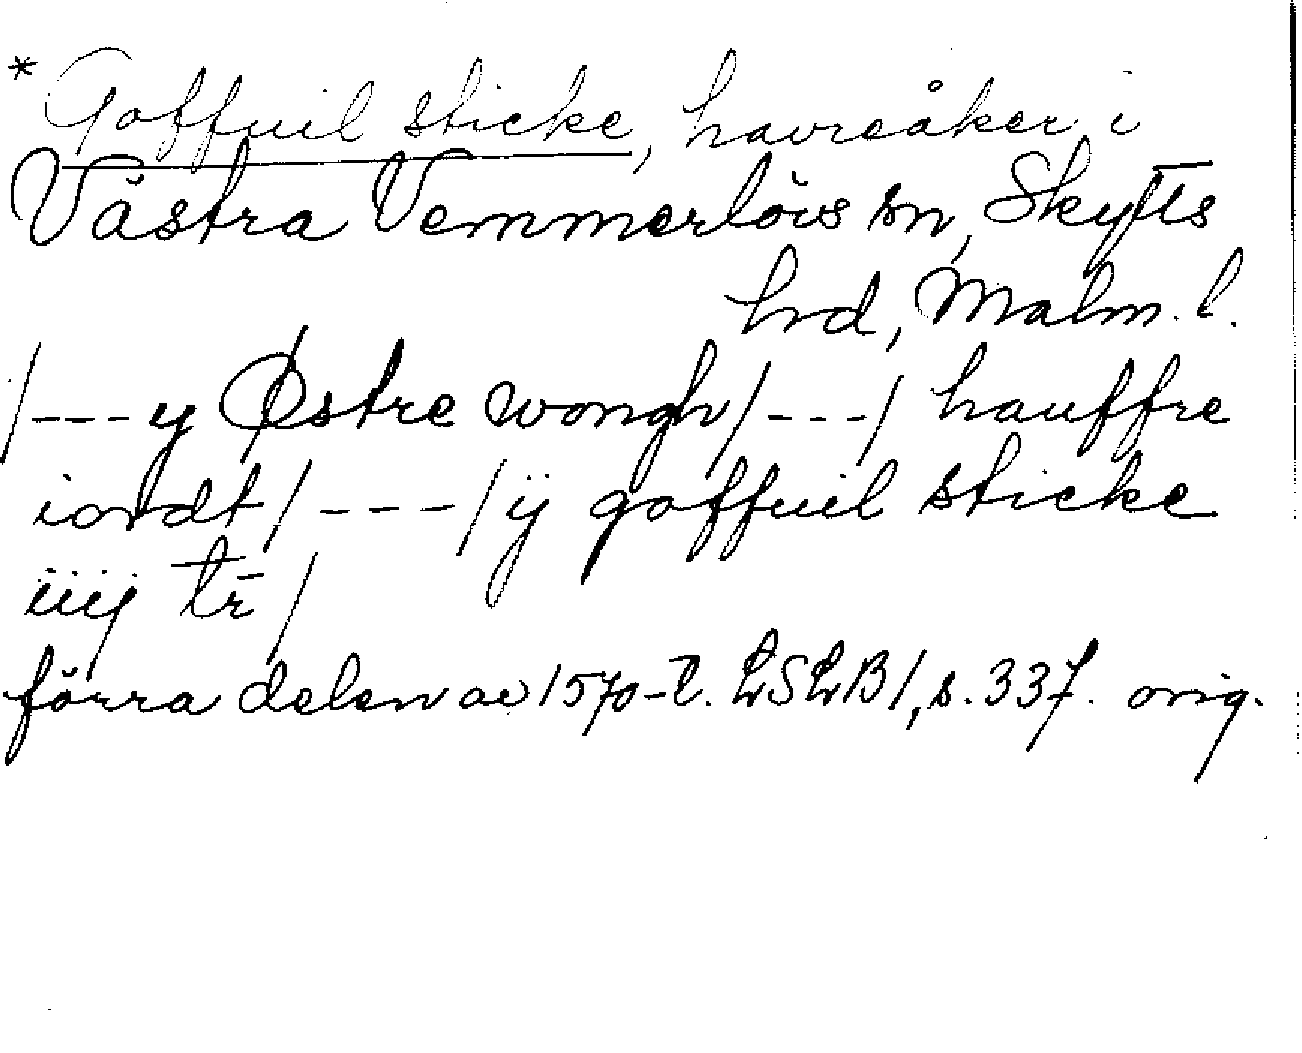 * Goffuil sticke, havreåker i
Västra Vemmerlövs sn, Skytts
hrd, Malm. l.
/---y Østre wongh/---/ hauffre
iordt/---/ÿ goffuil sticke
iiij tr̄/
förra delen av 1570-t. LSLB1, s. 337. orig.